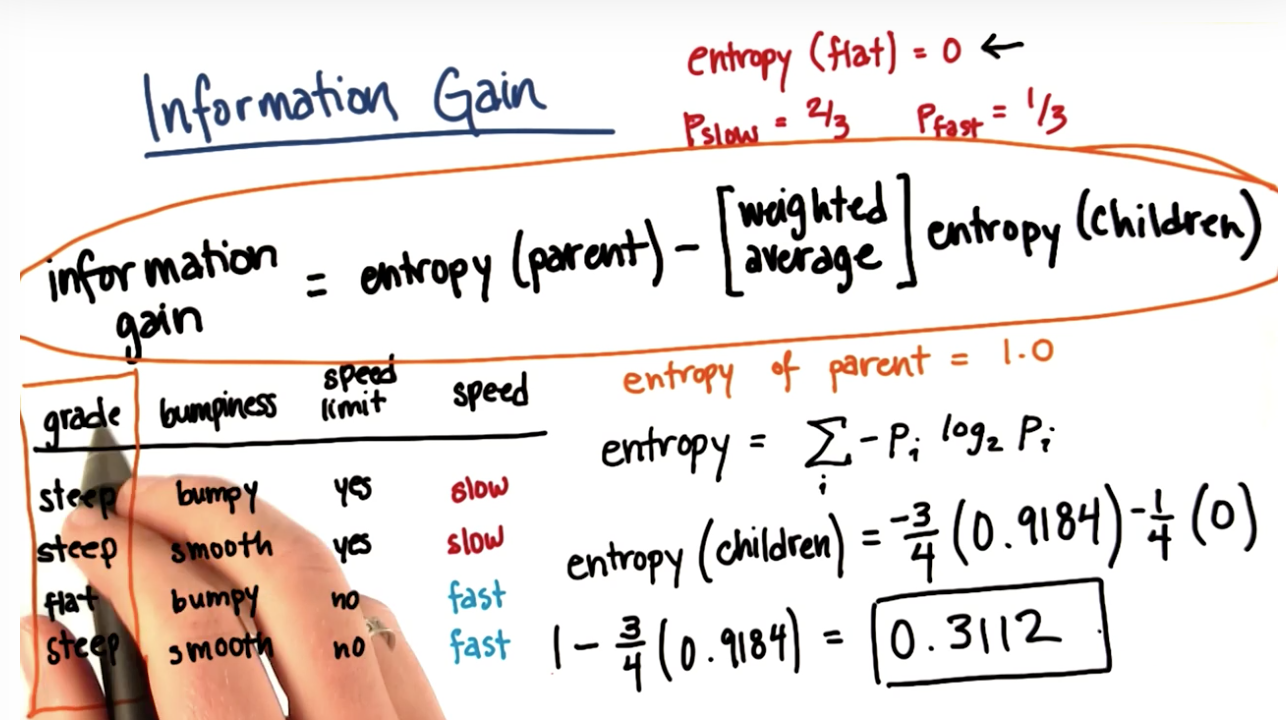 Information Gain
entropy (flat) = 0 ←
Pslow = 2/3 Pfast = 1/3
information gain = entropy (parent) - [weighted average] entropy (children)
entropy of parent = 1.0
grade bumpiness speed limit speed
steep bumpy yes slow
steep smooth yes slow
flat bumpy no fast
steep smooth no fast
entropy = Σi - Pi log2 Pi
entropy (children) = -3/4 (0.9184) - 1/4 (0)
1 - 3/4 (0.9184) = 0.3112